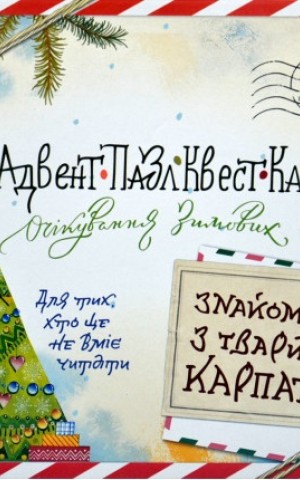 Адвент•Пазл•Квест•Ка
очікування зимових
Для тих,
хто ще
не вміє
читати
ЗНАЙОМ
З ТВАРИ
КАРПАТ